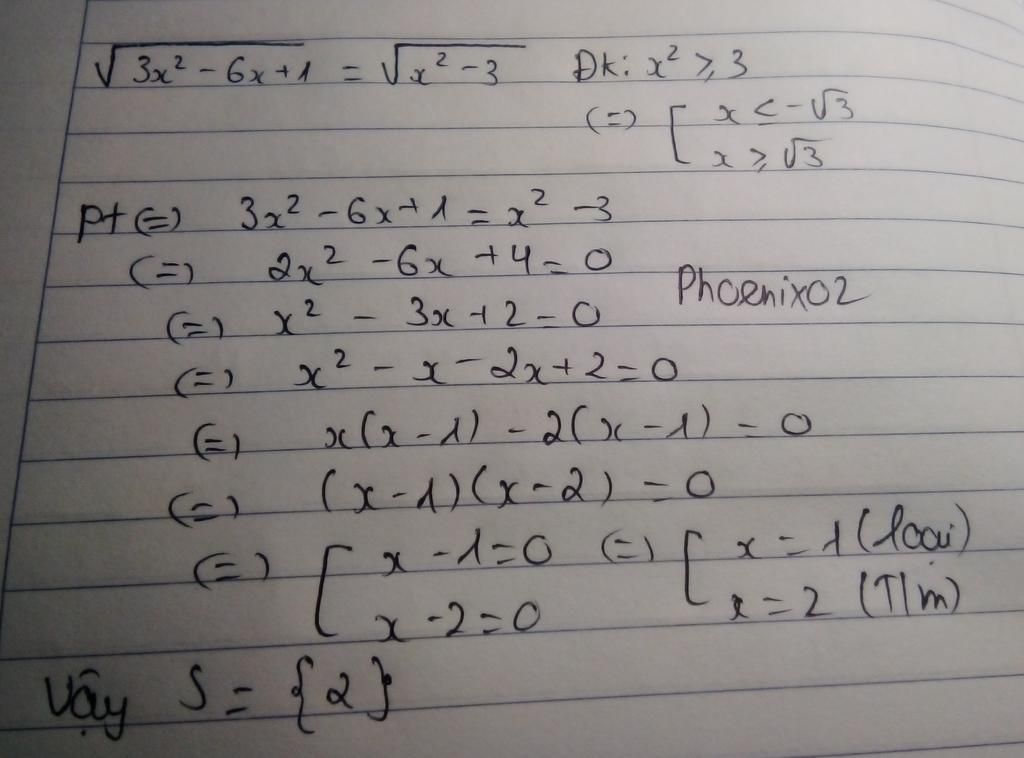 √(3x² - 6x + 1) = √(x² - 3) Đk: x² ≥ 3
(=) [ x < -√3
x ≥ √3
Pt (=) 3x² - 6x + 1 = x² - 3
(=) 2x² - 6x + 4 = 0
Phoenix02
(=) x² - 3x + 2 = 0
(=) x² - x - 2x + 2 = 0
(=) x(x - 1) - 2(x - 1) = 0
(=) (x - 1)(x - 2) = 0
(=) [ x - 1 = 0 (=) [ x = 1 (loại)
x - 2 = 0 x = 2 (T/m)
Vậy S = {2}